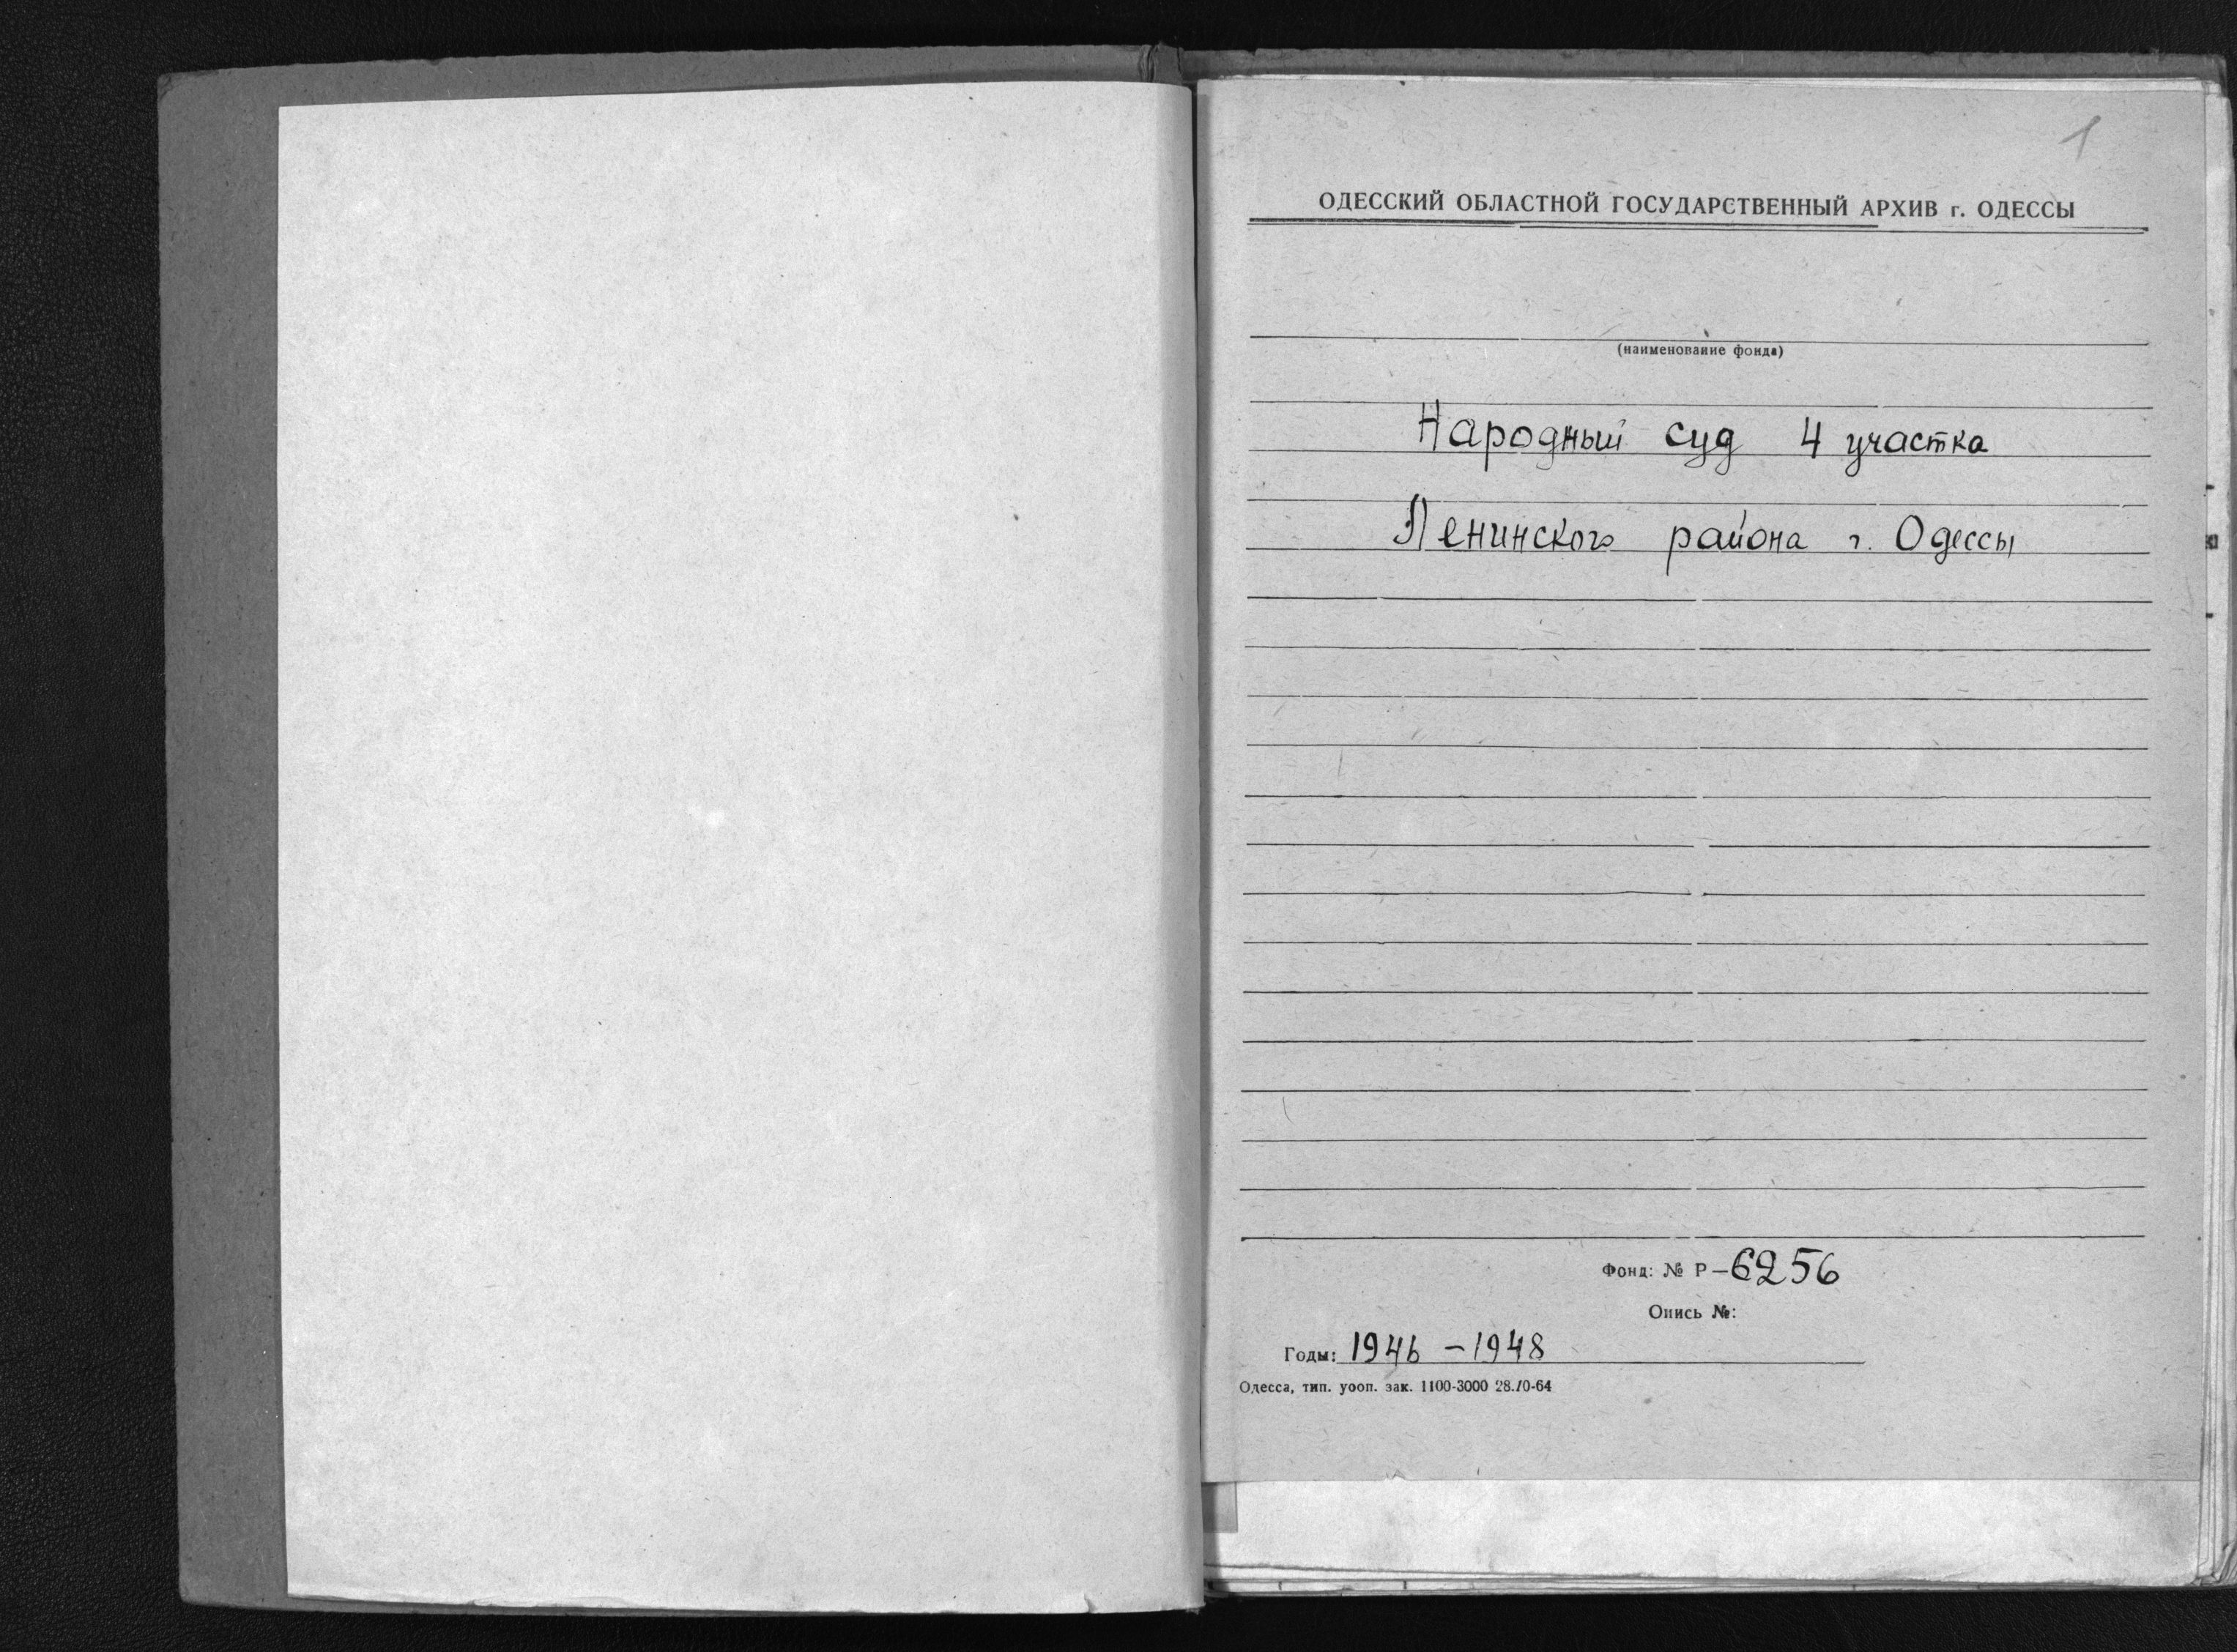 1
ОДЕССКИЙ ОБЛАСТНОЙ ГОСУДАРСТВЕННЫЙ АРХИВ г. ОДЕССЫ
(наименование фонда)
Народный суд 4 участка
Ленинского района г. Одессы
Фонд: № Р-6256
Опись №:
Годы: 1946 - 1948
Одесса, тип. уооп. зак. 1100-3000 28.10-64